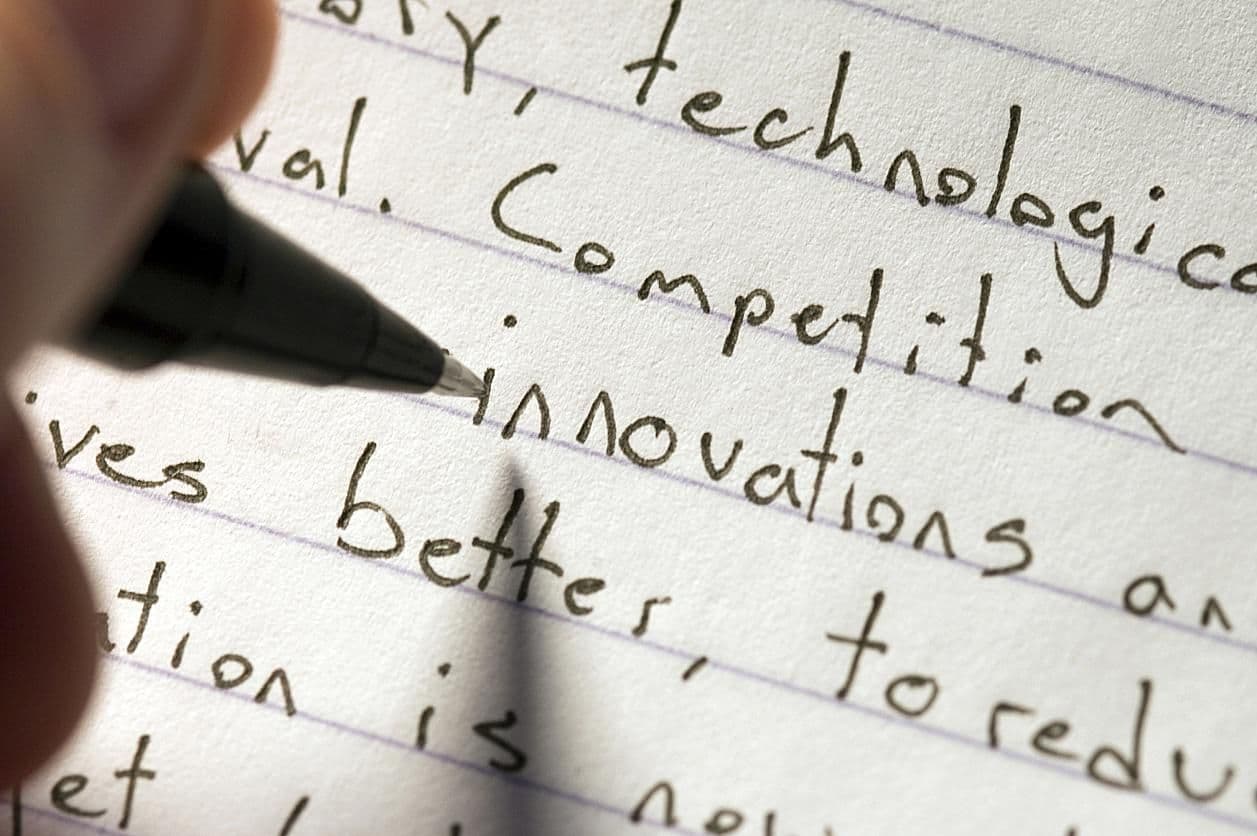 ory, technologica
val. Competition
innovations an
ves better, to redu
tion is no
et